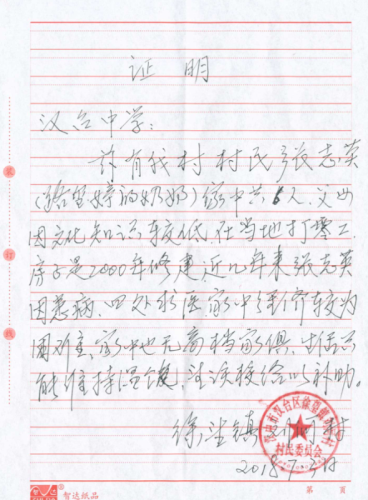 证 明
汉台中学:
兹有我村村民张志英
(的奶奶)家中共6人,父母
因文化知识较低,在当地打零工
房子是2000年修建,近几年来张志英
因患病,四处求医家中经济较为
困难,家中也无高档家俱,生活只
能维持温饱,望学校给以补助。
徐望镇村
村民委员会
2018.7.3日
装
订
线
智达纸品
第 页